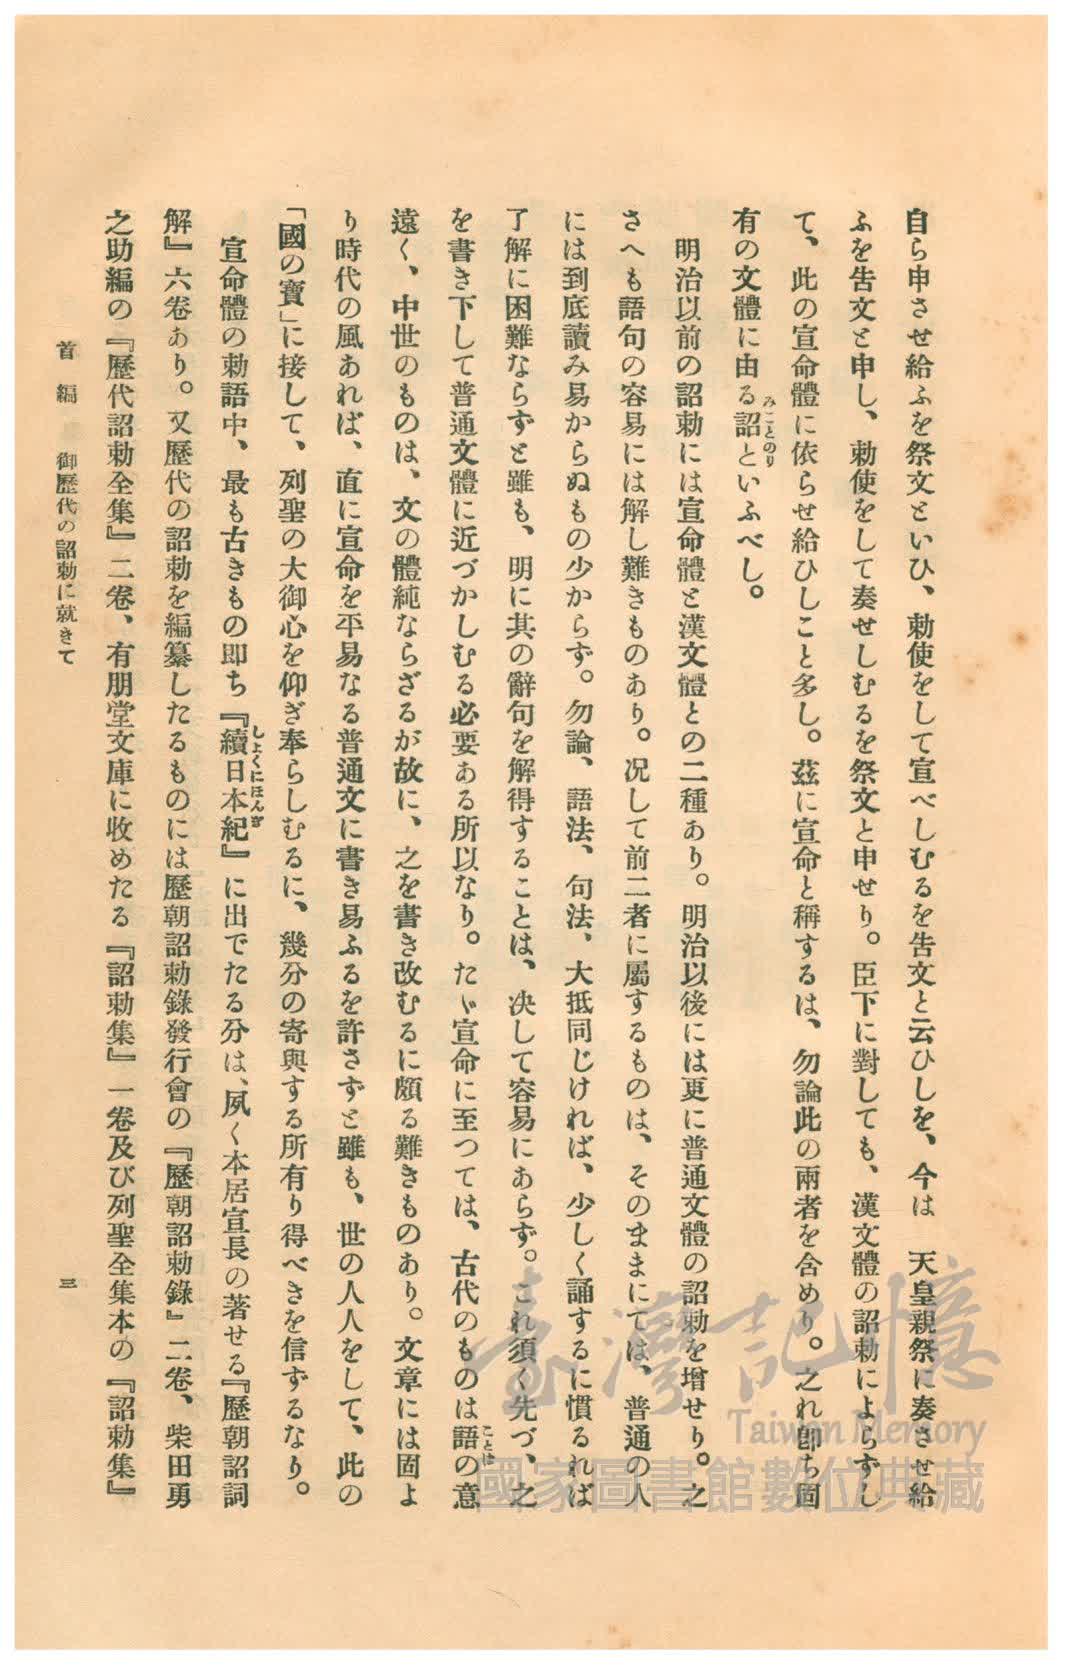 自ら申させ給ふを祭文といひ、勅使をして宣べしむるを告文と云ひしを、今は　天皇親祭に奏させ給
ふを告文と申し、勅使をして奏せしむるを祭文と申せり。臣下に對しても、漢文體の詔勅によらずし
て、此の宣命體に依らせ給ひしこと多し。茲に宣命と稱するは、勿論此の兩者を含めり。之れ卽ち固
有の文體に由る詔といふべし。
みことのり
明治以前の詔勅には宣命體と漢文體との二種あり。明治以後には更に普通文體の詔勅を增せり。之
さへも語句の容易には解し難きものあり。况して前二者に屬するものは、そのままにては、普通の人
には到底讀み易からぬもの少からず。勿論、語法、句法、大抵同じければ、少しく誦するに慣るれば
了解に困難ならずと雖も、明に其の辭句を解得することは、决して容易にあらず。これ須く先づ、之
を書き下して普通文體に近づかしむる必要ある所以なり。たゞ宣命に至つては、古代のものは語の意
ことば
遠く、中世のものは、文の體純ならざるが故に、之を書き改むるに頗る難きものあり。文章には固よ
り時代の風あれば、直に宣命を平易なる普通文に書き易ふるを許さずと雖も、世の人人をして、此の
「國の寶」に接して、列聖の大御心を仰ぎ奉らしむるに、幾分の寄與する所有り得べきを信ずるなり。
宣命體の勅語中、最も古きもの卽ち『續日本紀』に出でたる分は、夙く本居宣長の著せる『歷朝詔詞
しよくにほんぎ
解』六卷あり。又歷代の詔勅を編纂したるものには歷朝詔勅錄發行會の『歷朝詔勅錄』二卷、柴田勇
之助編の『歷代詔勅全集』二卷、有朋堂文庫に收めたる『詔勅集』一卷及び列聖全集本の『詔勅集』
首編　御歷代の詔勅に就きて
三
臺灣記憶
Taiwan Memory
國家圖書館數位典藏